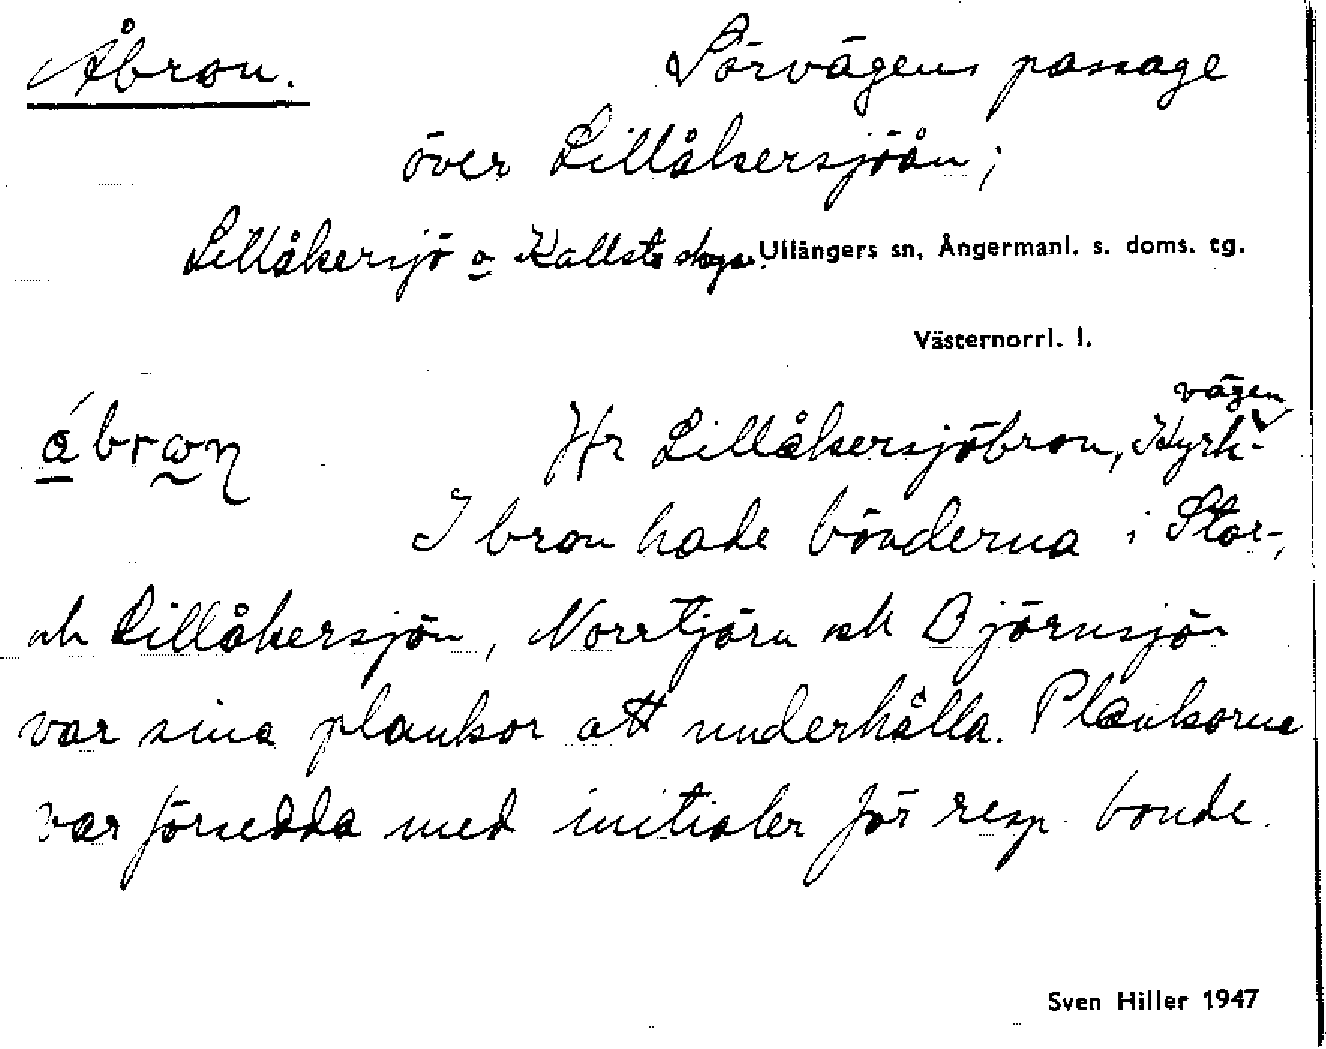 Åbron. Sörvägens passage
över Lillåkersjöån;
Lillåkersjö o Kallsta skogar. Ullångers sn, Ångermanl. s. doms. tg.
Västernorrl. l.
vägen
åbron Hr Lillåkersjöbron, Kyrk-
I bron hade bönderna i Stor-,
och Lillåkersjön, Norrtjärn och Björnsjön
var sina plankor att underhålla. Plankorna
var försedda med initialer för resp. bonde.
Sven Hiller 1947